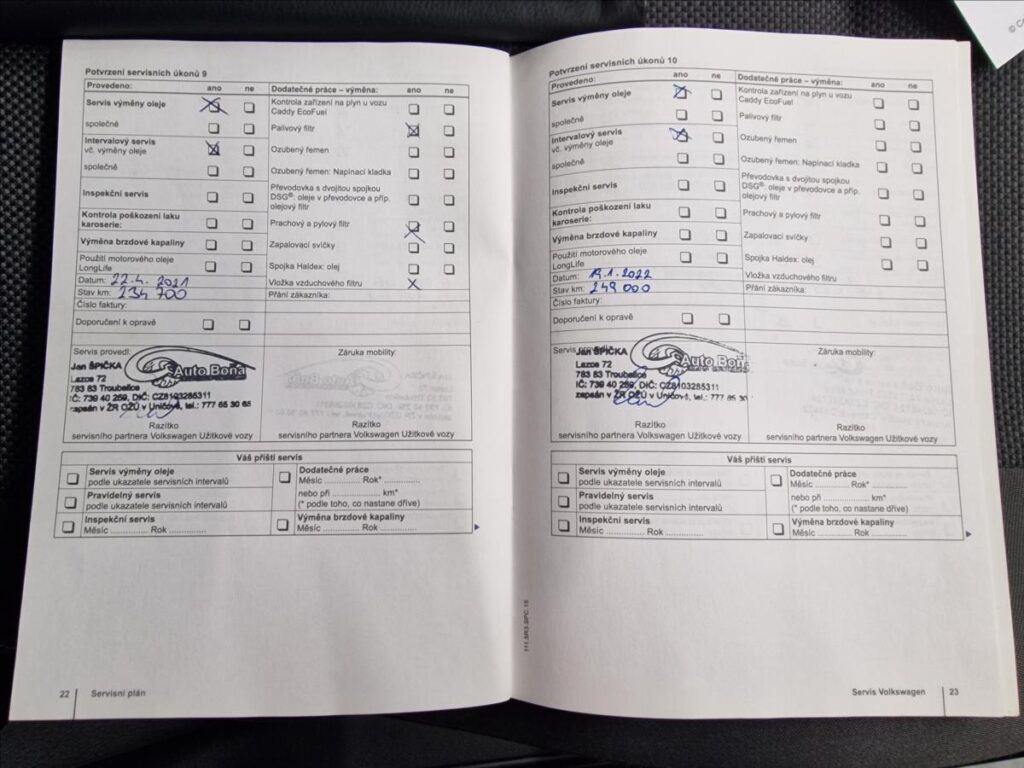 © C
Potvrzení servisních úkonů 9
Provedeno: ano ne Dodatečné práce – výměna: ano ne
Servis výměny oleje Kontrola zařízení na plyn u vozu
Caddy EcoFuel
společně Palivový filtr
Intervalový servis
vč. výměny oleje Ozubený řemen
společně Ozubený řemen: Napínací kladka
Inspekční servis Převodovka s dvojitou spojkou
DSG®: oleje v převodovce a příp.
olejový filtr
Kontrola poškození laku
karoserie: Prachový a pylový filtr
Výměna brzdové kapaliny Zapalovací svíčky
Použití motorového oleje
LongLife Spojka Haldex: olej
Datum: 22.4. 2021 Vložka vzduchového filtru
Stav km: 234 700 Přání zákazníka:
Číslo faktury:
Doporučení k opravě
Servis provedl: Záruka mobility:
Auto Bona
Jan ŠPIČKA
Lazce 72
783 83 Troubelice
IČ: 739 40 259, DIČ: CZ8103285311
zapsán v ŽR OŽÚ v Uničově, tel.: 777 65 30 65
Razítko Razítko
servisního partnera Volkswagen Užitkové vozy servisního partnera Volkswagen Užitkové vozy
Váš příští servis
Servis výměny oleje Dodatečné práce
podle ukazatele servisních intervalů Měsíc ............... Rok* ...............
Pravidelný servis nebo při ..................... km*
podle ukazatele servisních intervalů (* podle toho, co nastane dříve)
Inspekční servis Výměna brzdové kapaliny
Měsíc ............... Rok ............... Měsíc ............... Rok ...............
22 Servisní plán
Potvrzení servisních úkonů 10
Provedeno: ano ne Dodatečné práce – výměna: ano ne
Servis výměny oleje Kontrola zařízení na plyn u vozu
Caddy EcoFuel
společně Palivový filtr
Intervalový servis
vč. výměny oleje Ozubený řemen
společně Ozubený řemen: Napínací kladka
Inspekční servis Převodovka s dvojitou spojkou
DSG®: oleje v převodovce a příp.
olejový filtr
Kontrola poškození laku
karoserie: Prachový a pylový filtr
Výměna brzdové kapaliny Zapalovací svíčky
Použití motorového oleje
LongLife Spojka Haldex: olej
Datum: 19.1.2022 Vložka vzduchového filtru
Stav km: 249 000 Přání zákazníka:
Číslo faktury:
Doporučení k opravě
Servis provedl: Záruka mobility:
Auto Bona
Jan ŠPIČKA
Lazce 72
783 83 Troubelice
IČ: 739 40 259, DIČ: CZ8103285311
zapsán v ŽR OŽÚ v Uničově, tel.: 777 65 30
Razítko Razítko
servisního partnera Volkswagen Užitkové vozy servisního partnera Volkswagen Užitkové vozy
Váš příští servis
Servis výměny oleje Dodatečné práce
podle ukazatele servisních intervalů Měsíc ............... Rok* ...............
Pravidelný servis nebo při ..................... km*
podle ukazatele servisních intervalů (* podle toho, co nastane dříve)
Inspekční servis Výměna brzdové kapaliny
Měsíc ............... Rok ............... Měsíc ............... Rok ...............
Servis Volkswagen 23